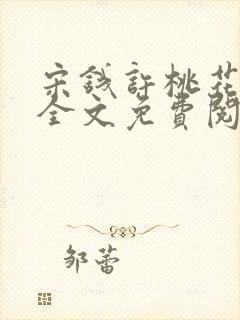 宋钱許桃花
全文免費閱
邹蕾